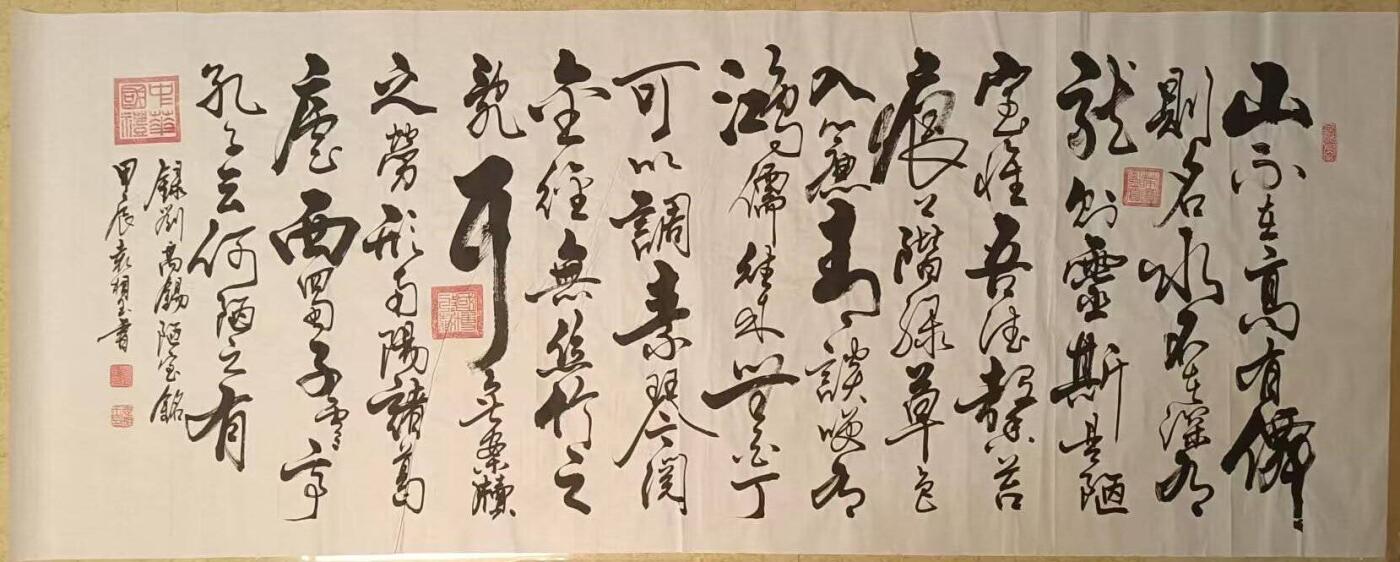 山不在高有僊
則名水不在深有
龍則靈斯是陋
室惟吾德馨苔
痕上階綠草色
入簾青談笑有
鴻儒往來無白丁
可以調素琴閱
金經無絲竹之
亂耳無案牘
之勞形南陽諸葛
廬西蜀子雲亭
孔子云何陋之有
錄劉禹錫陋室銘
甲辰袁相書
中華國禮